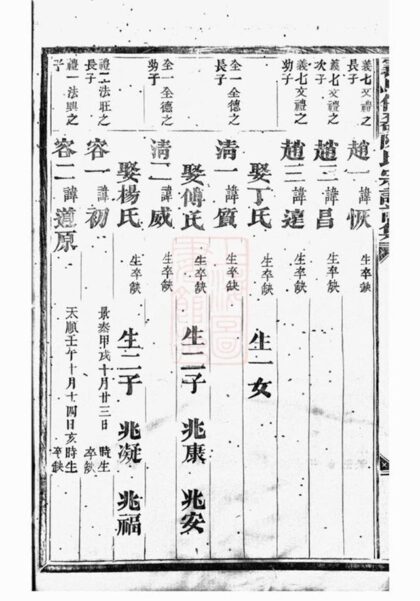 陳氏宗譜
義七文禮之長子 趙一諱恢 生卒缺
義七文禮之次子 趙二諱昌 生卒缺
義七文禮之幼子 趙三諱達 生卒缺
娶丁氏 生卒缺 生一女
全一全德之長子 清一諱質 生卒缺
娶傅氏 生卒缺 生二子 兆康 兆安
全一全德之幼子 清二諱威 生卒缺
娶楊氏 生卒缺 生二子 兆凝 兆福
禮二法旺之長子 容一諱初 景泰甲戌十月廿三日 時生 卒缺
禮一法興之子 容二諱道原 天順壬午十月十四日亥時生 卒缺